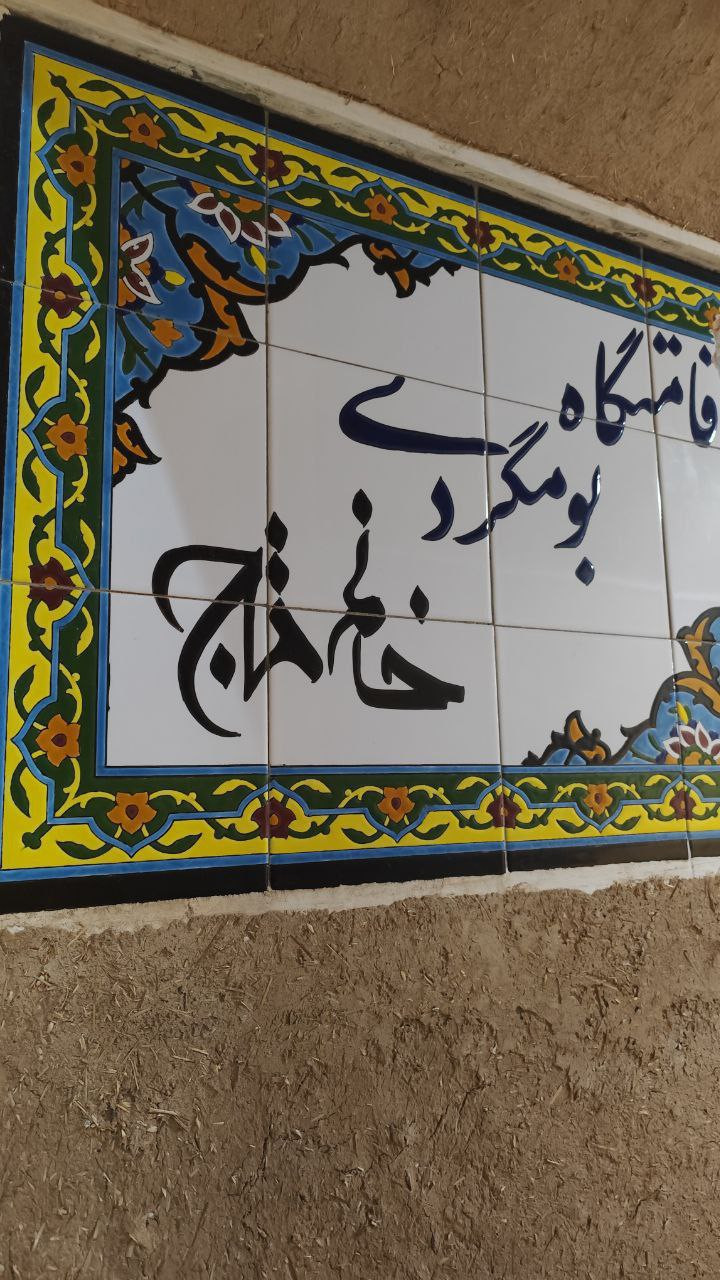 قامتگاه
بومگردی
خانم تاج